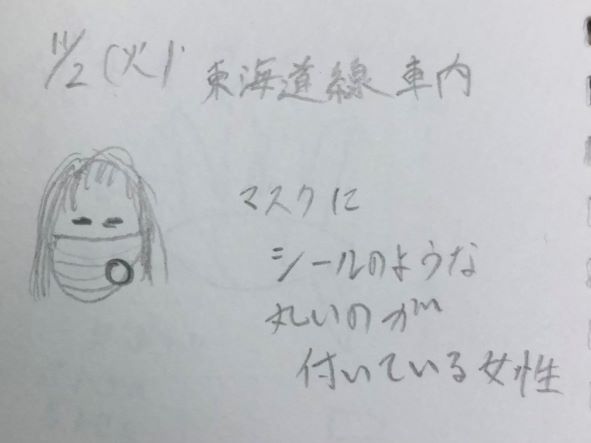 11/2(火) 東海道線 車内
マスクに
シールのような
丸いのが
付いている女性